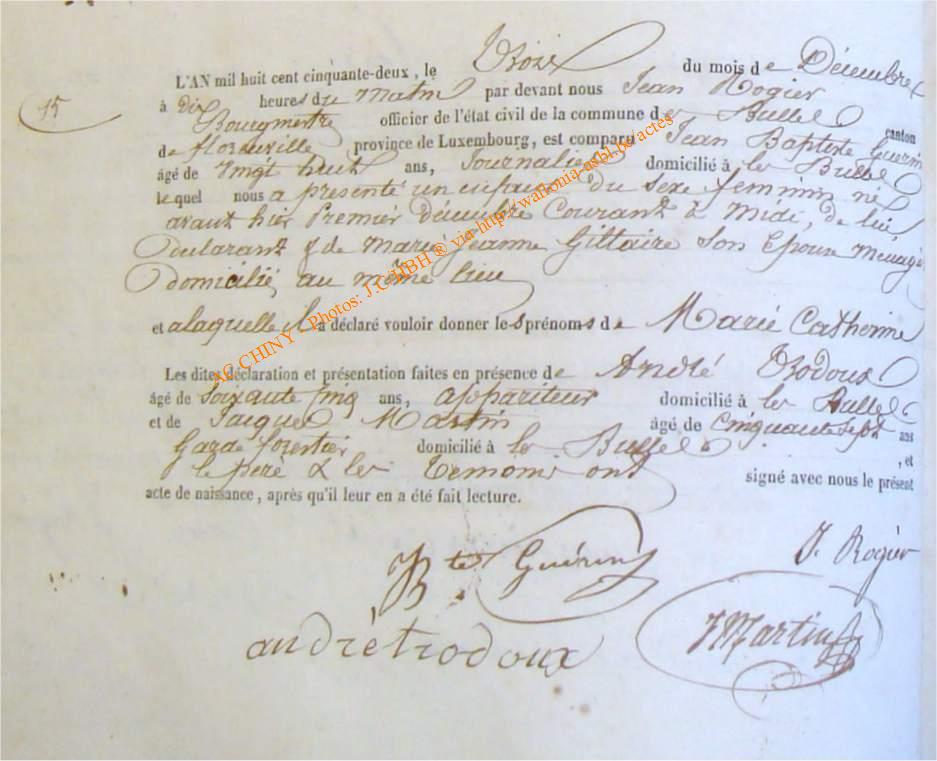 15
L'AN mil huit cent cinquante-deux, le Trois du mois de Décembre
à dix heures du Matin par devant nous Jean Rogier
Bourgmestre officier de l'état civil de la commune des Bulles canton
de florenville province de Luxembourg, est comparu Jean Baptiste Guerin
âgé de Vingt huit ans, Journalier domicilié à les Bulles
lequel nous a presenté un enfant du sexe feminin né
avant hier Premier décembre Courant à Midi, de lui
declarant & de Marie Jeanne Giltaire son Epouse Ménagè
domicilié au même lieu
et a laquelle il a déclaré vouloir donner les prénoms de Marie Catherine
Les dites déclaration et présentation faites en présence de André Trodoux
âgé de Soixante cinq ans, appariteur domicilié à les Bulles
et de Jacques Martin âgé de Cinquante Sept ans
Garde forestier domicilié à les Bulles , et
le père & les Temoins ont signé avec nous le présent
acte de naissance, après qu'il leur en a été fait lecture.
JBte Guérin J. Rogier
andrètrodoux JMartin
AC CHINY - Photos: J.C HBH ® via http://wallonia-asbl.be/actes